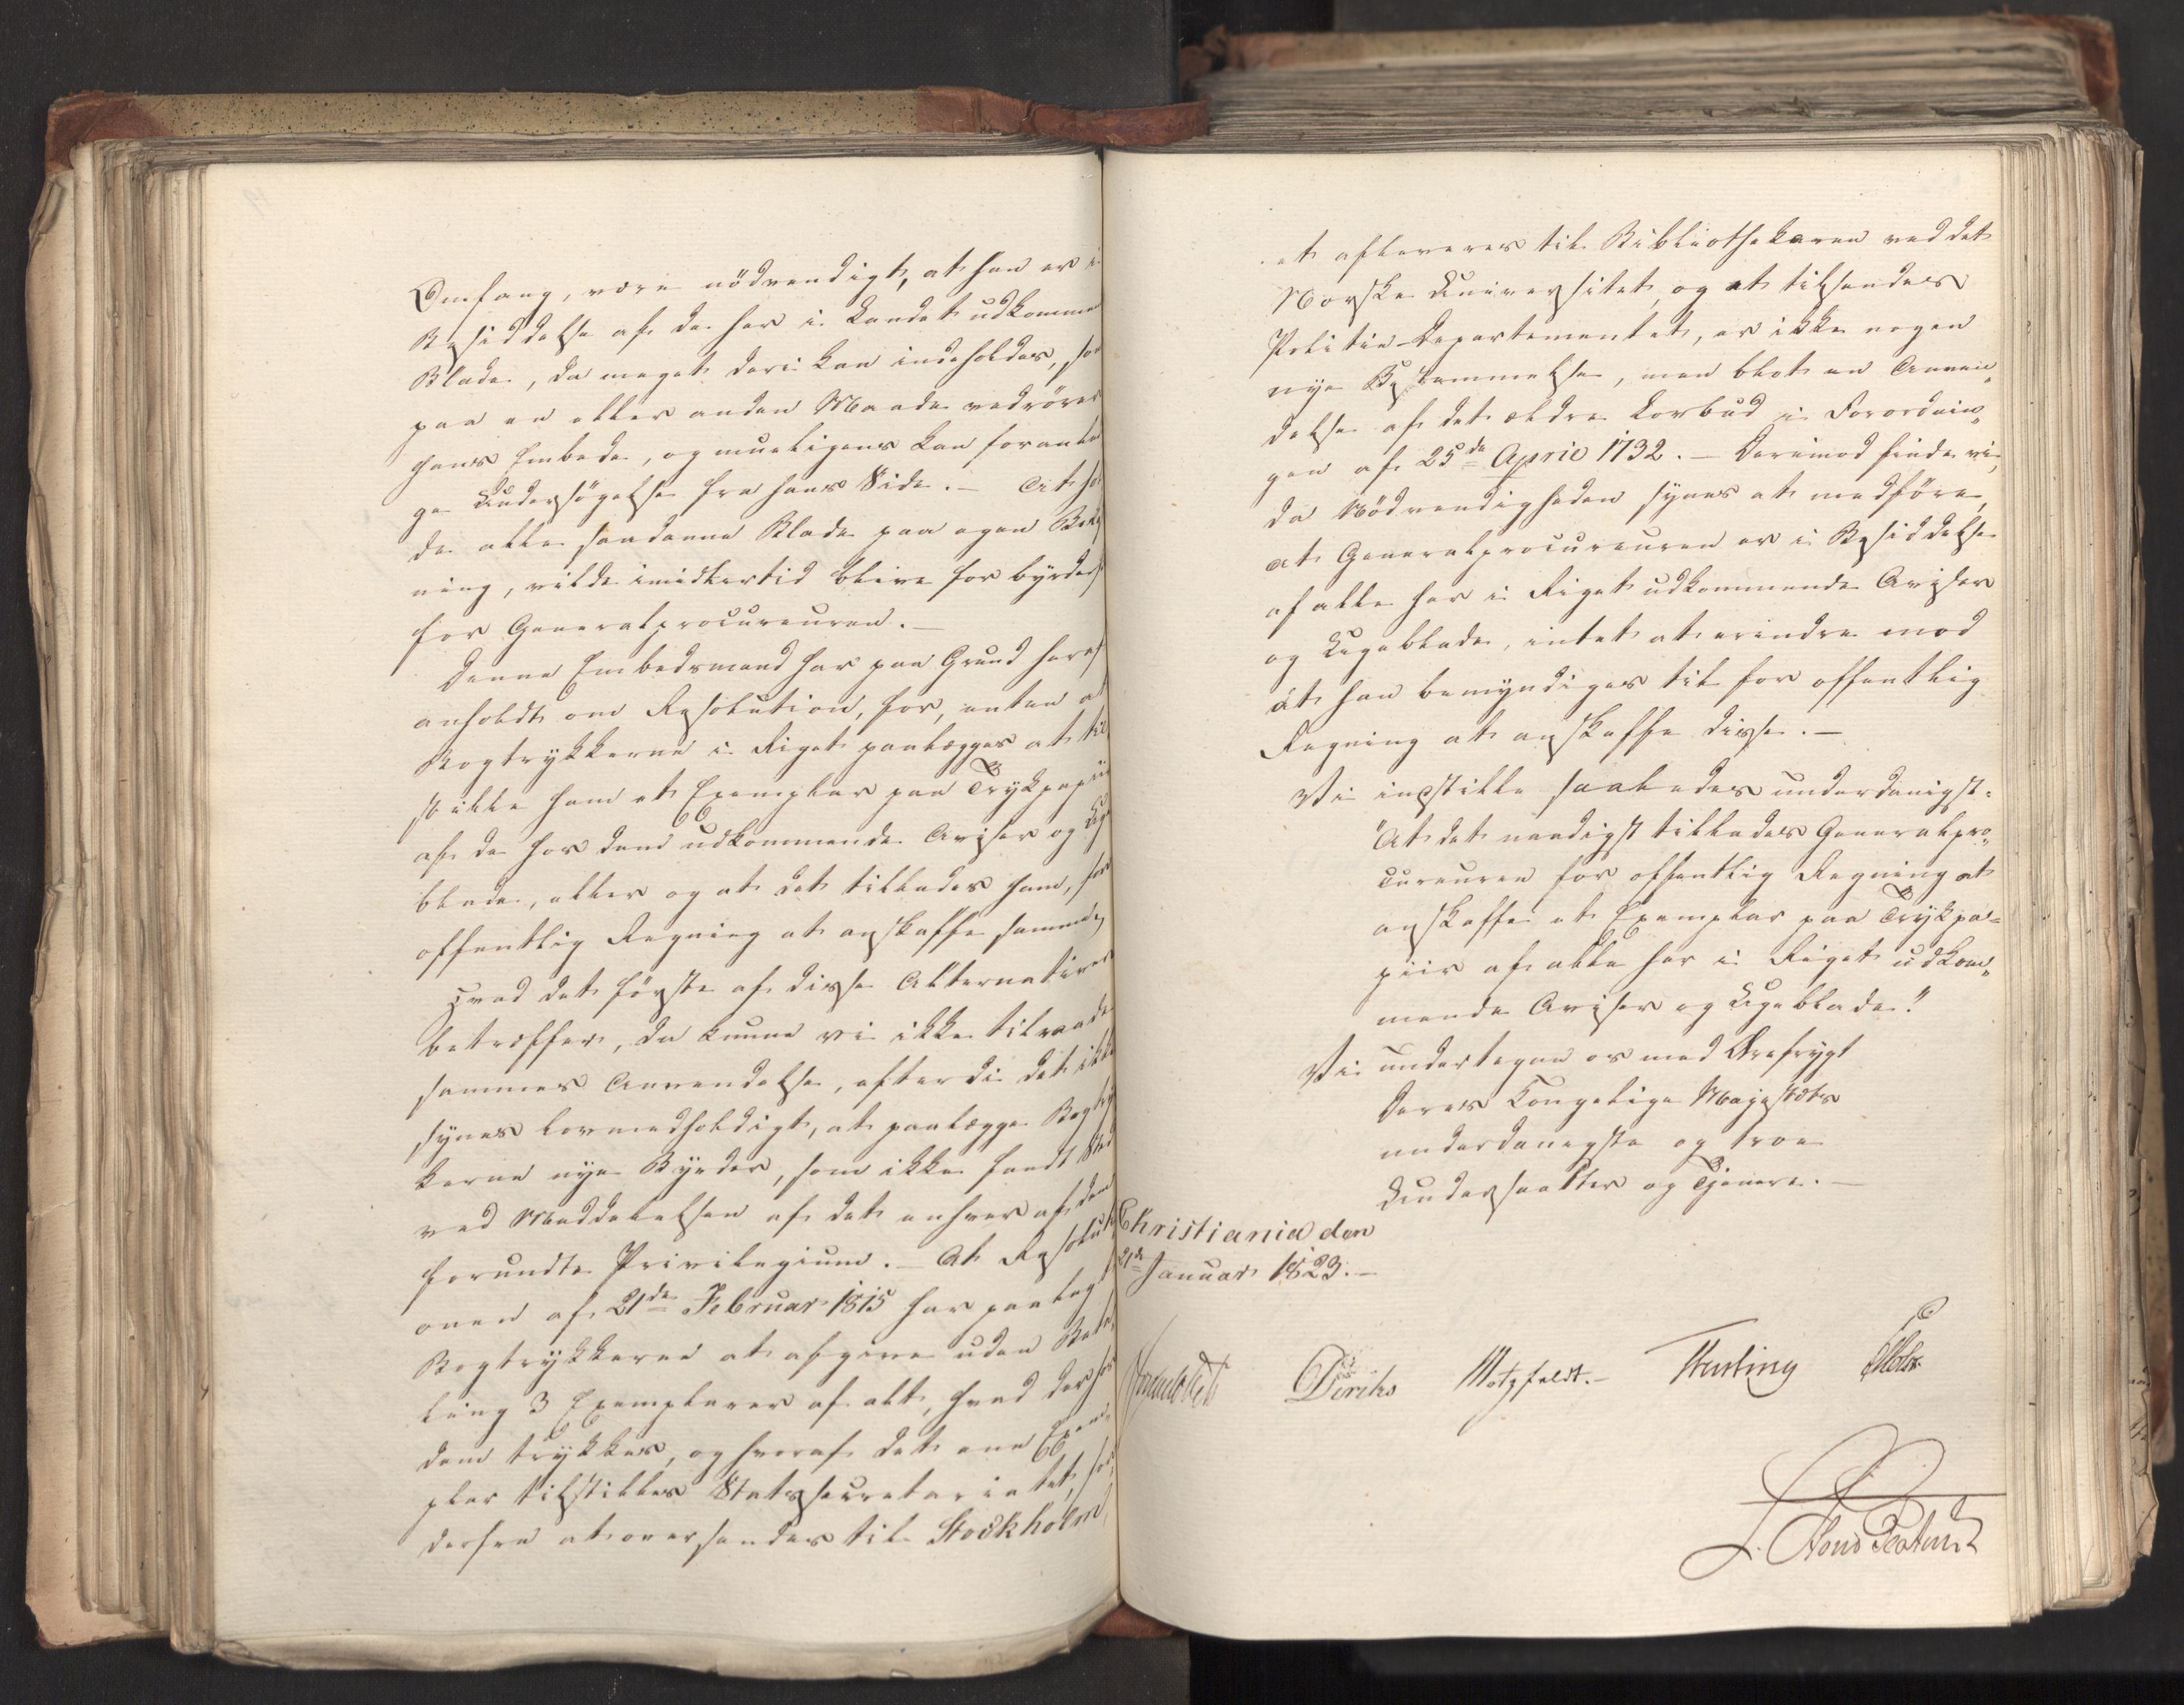 Omfang, være nödvendigt, at han er i
Besiddelse af de her i Landet udkommen
Blade, da meget deri kan indeholdes, som
paa en eller anden Maade vedrörer
hans Embede, og mueligens kan foranle
ge Undersögelse fra hans Side. – At ho
de alle saadanne Blade paa egen Bek
ning, vilde imidlertid blive for byrdes
for Generalprocureuren. –
Denne Embedsmand har paa Grund heraf
anholdt om Resolution, for, enten at
Bogtrykkerne i Riget paalægges at til
stille ham et Exemplar paa Trykpapiir
af de hos dem udkommende Aviser og Uge
blade, eller og at det tillades ham, for
offentlig Regning at anskaffe samme,
Hvad det förste af disse Alternativer
betræffer, da kunne vi ikke tilraade
sammes Anvendelse, efterdi det ikke
synes lovmedholdigt, at paalægge Bogtryk
kerne nye Byrder, som ikke fandt Sted
ved Meddelelsen af det enhver af dem
forundte Privilegium. – At Resoluti
onen af 21de Februar 1815 har paalagt
Bogtrykkerne at afgive uden Beta
ling 3 Exemplarer af alt, hvad der hos
dem trykkes, og hvoraf det ene Exem
plar tilstilles Statssecretariatet, for
derfra at oversendes til Stockholm,
et afleveres til Bibliothekaren ved det
Norske Universitet, og et tilsendes
Politie-Departementet, er ikke nogen
nye Bestemmelse, men blot en Anven„
delse af det ældre Lovbud i Forordnin„
gen af 25de April 1732. – Derimod finde vi,
da Nödvendigheden synes at medföre,
at Generalprocureuren er i Besiddelse
af alle her i Riget udkommende Aviser
og Ugeblade, intet at erindre mod
at han bemyndiges til for offentlig
Regning at anskaffe disse. –
Vi indstille saaledes underdanigst:
"At det naadigst tillades Generalpro„
cureuren for offentlig Regning at
anskaffe et Exemplar paa Trykpa=
piir af alle her i Riget udkom„
mende Aviser og Ugeblade."
Vi undertegne os med Ærefrygt
Deres Kongelige Majestæts
underdanigste og troe
Undersaatter og Tjenere. –
Christiania den
21de Januar 1823. –
Diriks Motzfeldt. –